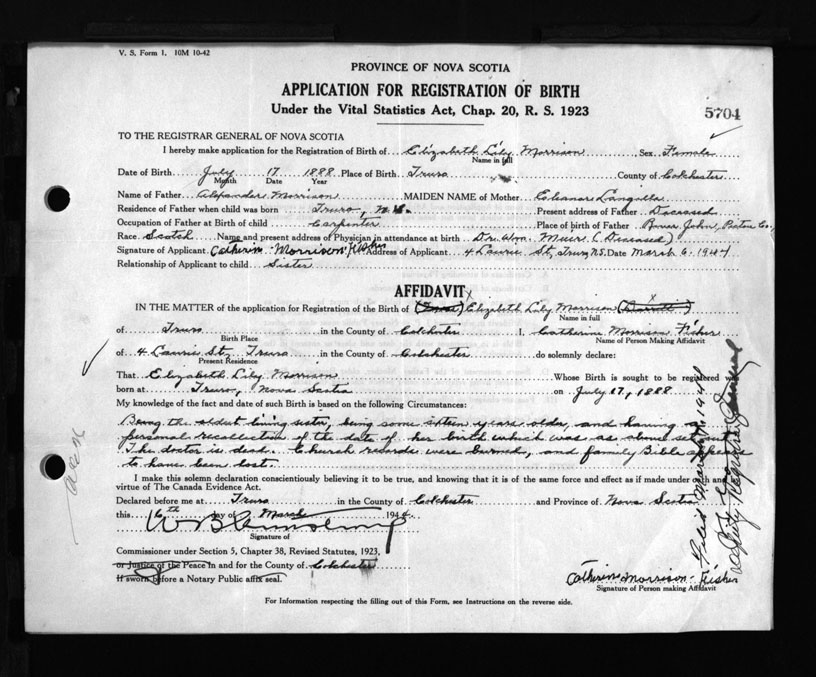 V. S. Form 1. 10M 10-42
PROVINCE OF NOVA SCOTIA
APPLICATION FOR REGISTRATION OF BIRTH
Under the Vital Statistics Act, Chap. 20, R. S. 1923
5704
TO THE REGISTRAR GENERAL OF NOVA SCOTIA
I hereby make application for the Registration of Birth of Elizabeth Lily Morrison, Sex Female
Name in full
Date of Birth July 17 1888 Place of Birth Truro County of Colchester
Month Date Year
Name of Father Alexander Morrison MAIDEN NAME of Mother Eleanor Langille
Residence of Father when child was born Truro, N.S. Present address of Father Deceased
Occupation of Father at Birth of child Carpenter Place of birth of Father River John, Pictou Co.
Race Scotch Name and present address of Physician in attendance at birth Dr. Wm. Muir (Deceased)
Signature of Applicant Catherine Morrison Fisher Address of Applicant 4 Laurie St, Truro, N.S. Date March 6, 1944
Relationship of Applicant to child Sister
AFFIDAVIT
IN THE MATTER of the application for Registration of the Birth of Elizabeth Lily Morrison
Name in full
of Truro in the County of Colchester I, Catherine Morrison Fisher
Birth Place Name of Person Making Affidavit
of 4 Laurie St, Truro in the County of Colchester do solemnly declare:
Present Residence
That Elizabeth Lily Morrison Whose Birth is sought to be registered was
born at Truro, Nova Scotia on July 17, 1888
My knowledge of the fact and date of such Birth is based on the following Circumstances:
Being the oldest living sister, being some sixteen years older, and having a
personal recollection of the date of her birth which was as above set out.
The doctor is dead. Church records were burned, and family Bible appears
to have been lost.
I make this solemn declaration conscientiously believing it to be true, and knowing that it is of the same force and effect as if made under oath and by
virtue of The Canada Evidence Act.
Declared before me at Truro in the County of Colchester and Province of Nova Scotia
this 6th day of March 1944
Signature of
Commissioner under Section 5, Chapter 38, Revised Statutes, 1923,
or Justice of the Peace in and for the County of Colchester
If sworn before a Notary Public affix seal.
Catherine Morrison Fisher
Signature of Person making Affidavit
For Information respecting the filling out of this Form, see Instructions on the reverse side.